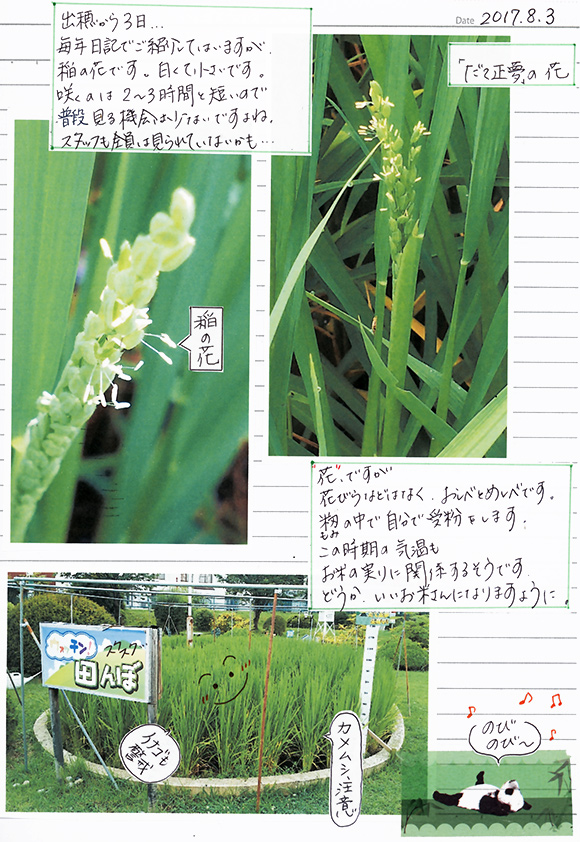 Date 2017.8.3
出穂から3日...
毎年日記でご紹介してはいますが、
稲の花です。白くて小さいです。
咲くのは2〜3時間と短いので
普段見る機会は少ないですよね。
スタッフも全員は見られていないかも...
「だて正夢」の花
稲の花
"花"ですが
花びらはなく、おしべとめしべです。
籾の中で自分で受粉をします。
もみ
この時期の気温も
お米の実りに関係するそうです
どうか、いいお米さんになりますように。
スクスク
田んぼ
イナゴも
警戒
カメムシ注意
のび
のび〜